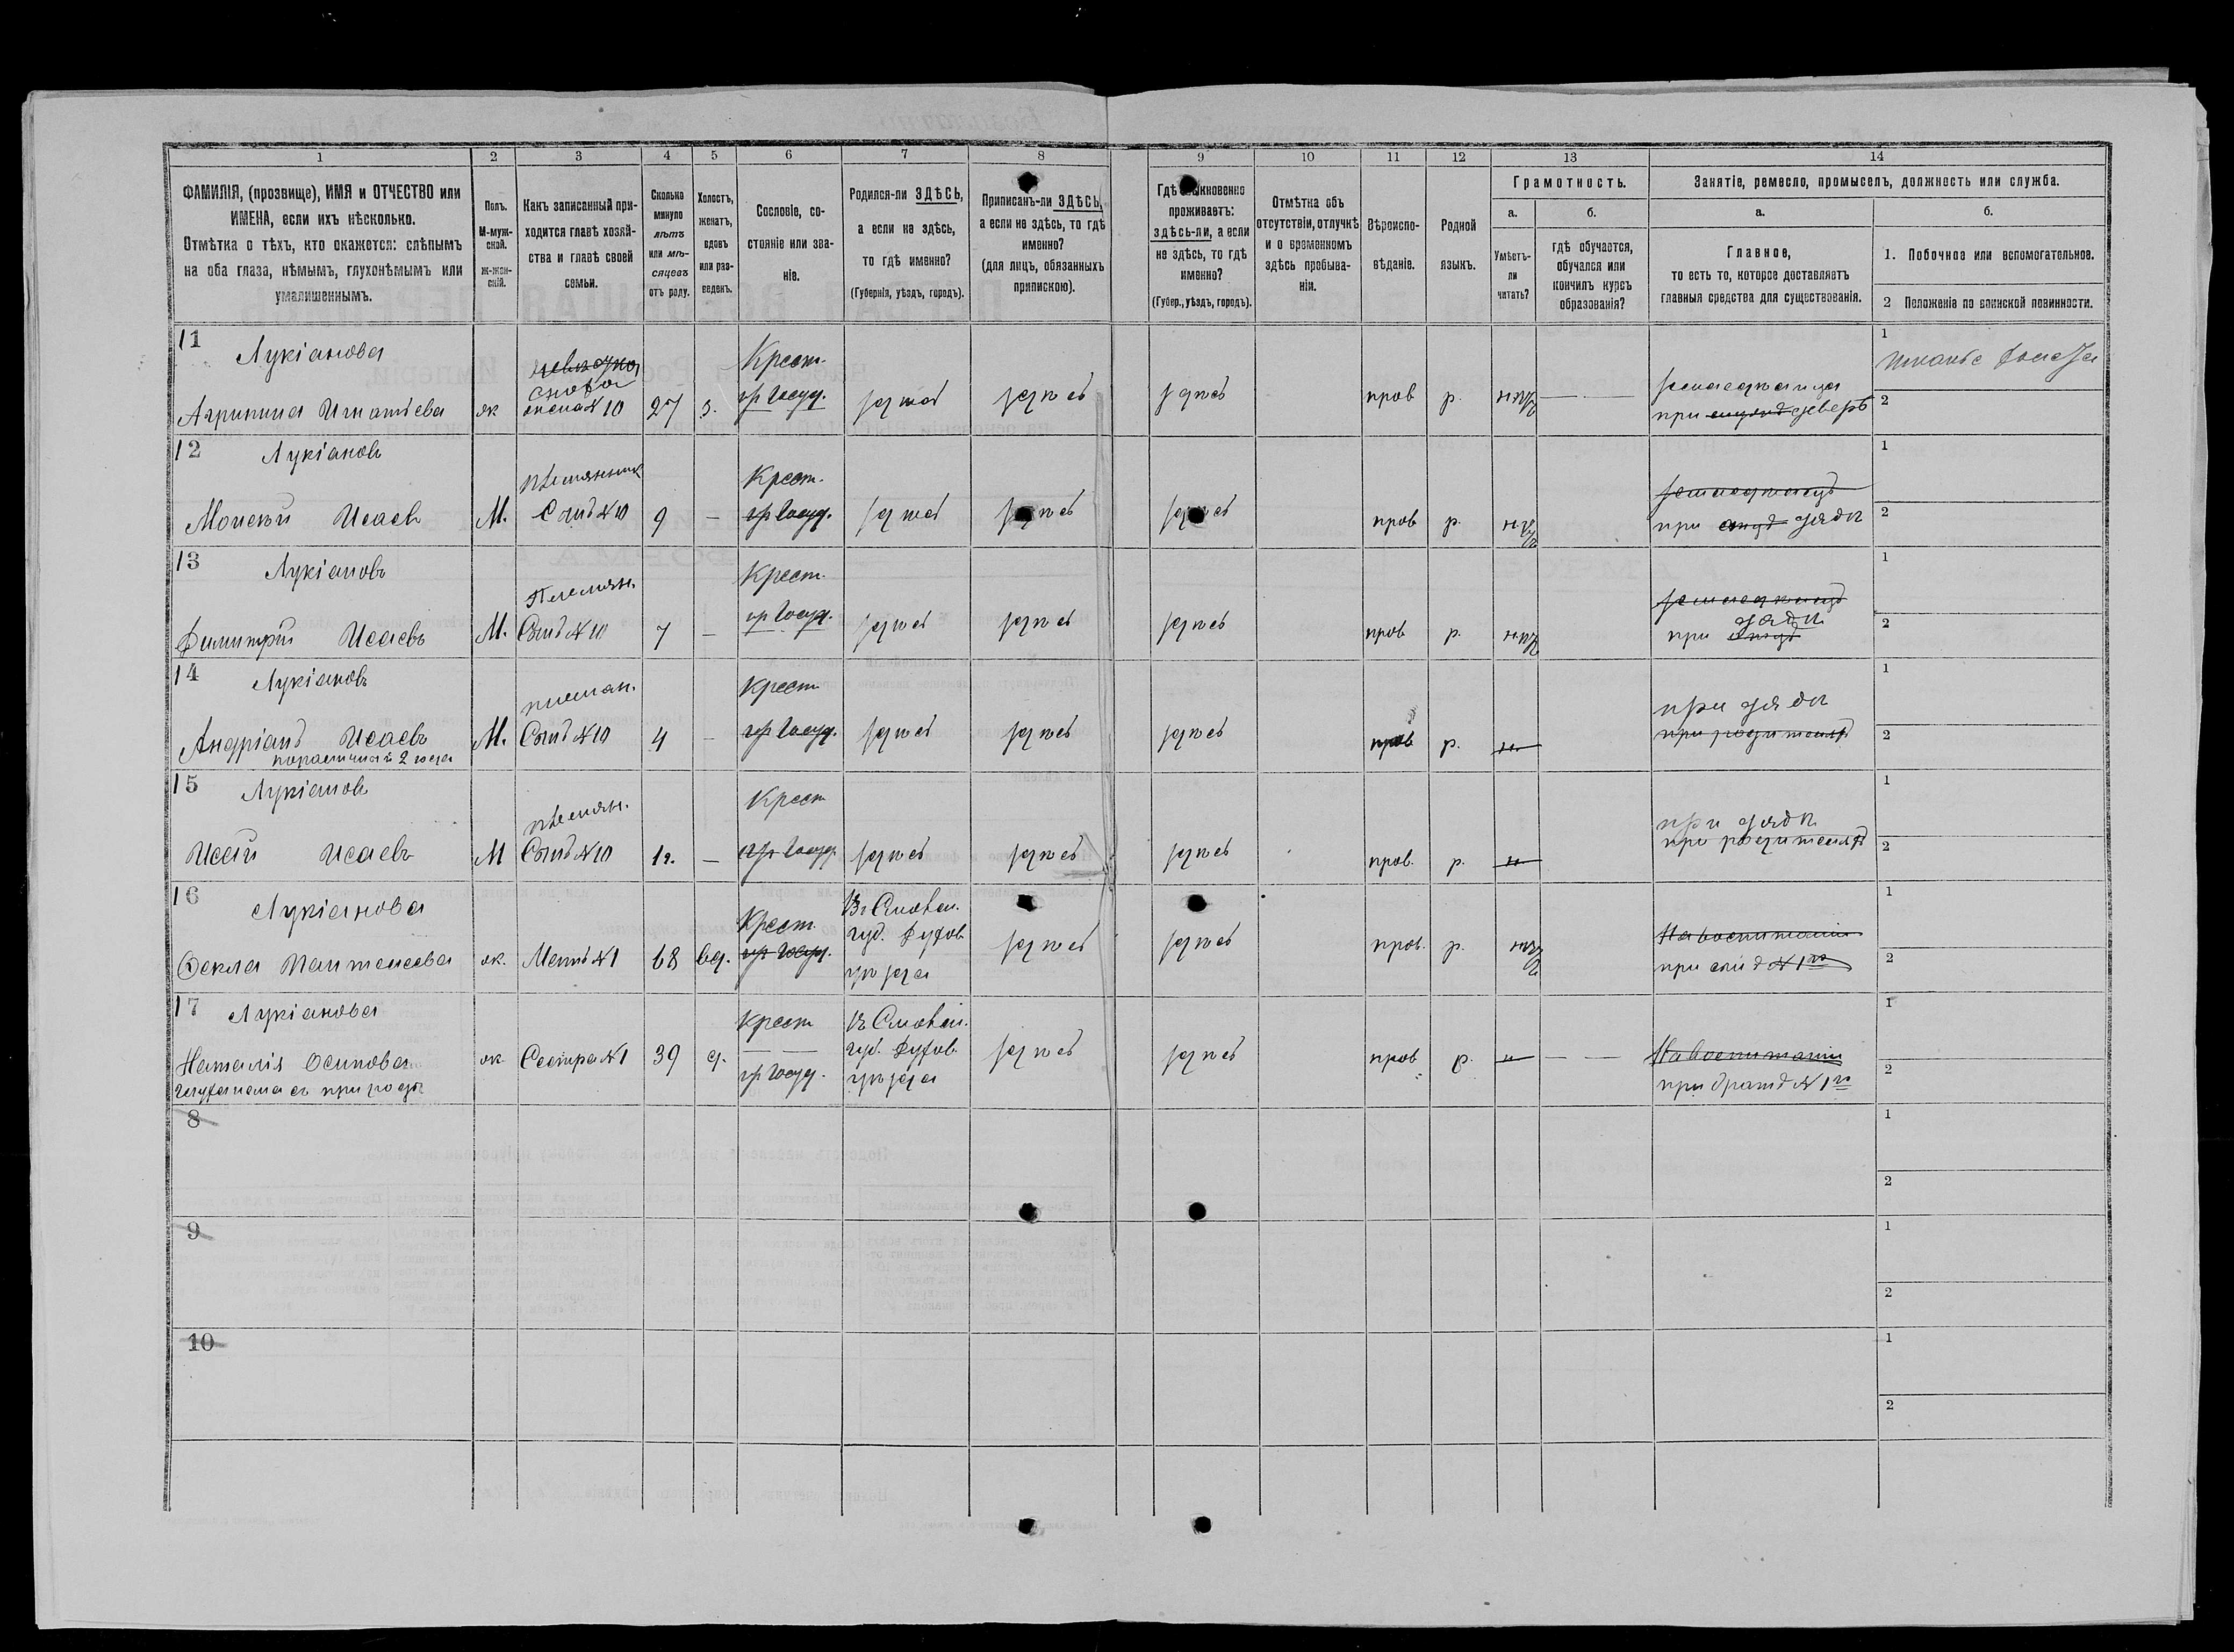 1 2 3 4 5 6 7 8 9 10 11 12 13 14
ФАМИЛІЯ, (прозвище), ИМЯ и ОТЧЕСТВО или
ИМЕНА, если ихъ нѣсколько.
Отмѣтка о тѣхъ, кто окажется: слѣпымъ
на оба глаза, нѣмымъ, глухонѣмымъ или
умалишеннымъ.
Полъ.
М-муж-
ской.
Ж-жен-
скій.
Какъ записанный при-
ходится главѣ хозяй-
ства и главѣ своей
семьи.
Сколько
минуло
лѣтъ
или мѣ-
сяцевъ
отъ роду.
Холостъ,
женатъ,
вдовъ
или раз-
веденъ.
Сословіе, со-
стояніе или зва-
ніе.
Родился-ли ЗДѢСЬ,
а если не здѣсь,
то гдѣ именно?
(Губернія, уѣздъ, городъ).
Приписанъ-ли ЗДѢСЬ,
а если не здѣсь, то гдѣ
именно?
(для лицъ, обязанныхъ
припискою).
Гдѣ обыкновенно
проживаетъ:
здѣсь-ли, а если
не здѣсь, то гдѣ
именно?
(Губер., уѣздъ, городъ).
Отмѣтка объ
отсутствіи, отлучкѣ
и о временномъ
здѣсь пребыва-
ніи.
Вѣроиспо-
вѣданіе.
Родной
языкъ.
Грамотность.
а.
Умѣетъ-
ли
читать?
б.
гдѣ обучается,
обучался или
кончилъ курсъ
образованія?
Занятіе, ремесло, промыселъ, должность или служба.
а.
Главное,
то есть то, которое доставляетъ
главныя средства для существованія.
б.
1. Побочное или вспомогательное.
2 Положеніе по воинской повинности.
11 Лукіанова
Агрипина Игнатьева ж сноха жена №10 27 з. Крест. здѣсь здѣсь здѣсь прав р. нѣтъ
при деверѣ
1
2
12 Лукіановъ
Моисей Исаевъ М. племянник Сынъ №10 9 — Крест. здѣсь здѣсь здѣсь прав р. нѣтъ
при дядѣ
1
2
13 Лукіановъ
Димитрій Исаевъ М. Племян. Сынъ №10 7 — Крест. здѣсь здѣсь здѣсь прав р. нѣтъ
при дядѣ
1
2
14 Лукіановъ
Андріанъ Исаевъ М. племян. Сынъ №10 4 - Крест здѣсь здѣсь здѣсь прав р. н.
2 года
при дядѣ
при родителяхъ
1
2
15 Лукіановъ
Исай Исаевъ М племян. Сынъ №10 1г. — Крест здѣсь здѣсь здѣсь прав. р. н
при дядѣ
при родителяхъ
1
2
16 Лукіанова
Фекла Пантелеева ж. Мать №1 68 вд. Крест. здѣсь здѣсь прав. р. нѣтъ
Въ Смолен.
губ. Духов.
уѣзда
На воспитаніи
при сынѣ №1го
1
2
17 Лукіанова
Наталія Осипова ж. Сестра №1 39 д. Крест здѣсь здѣсь прав р. н — —
съ природы
Въ Смолен.
губ. Духов.
уѣзда
На воспитаніи
при братѣ №1го
1
2
8
1
2
9
1
2
10
1
2